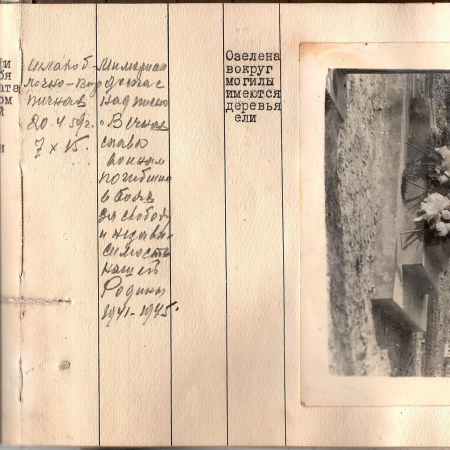 ди
бя
ата
ом
й
и
шлакоб-
лочно-кир
пичная
20.4.59г.
7 х 15.
Мимориал
доска с
надписью
"Вечная
слава
воинам
погибшим
в боях
за свободу
и незави-
симость
нашей
Родины
1941-1945.
Озелена
вокруг
могилы
имеются
деревья
ели